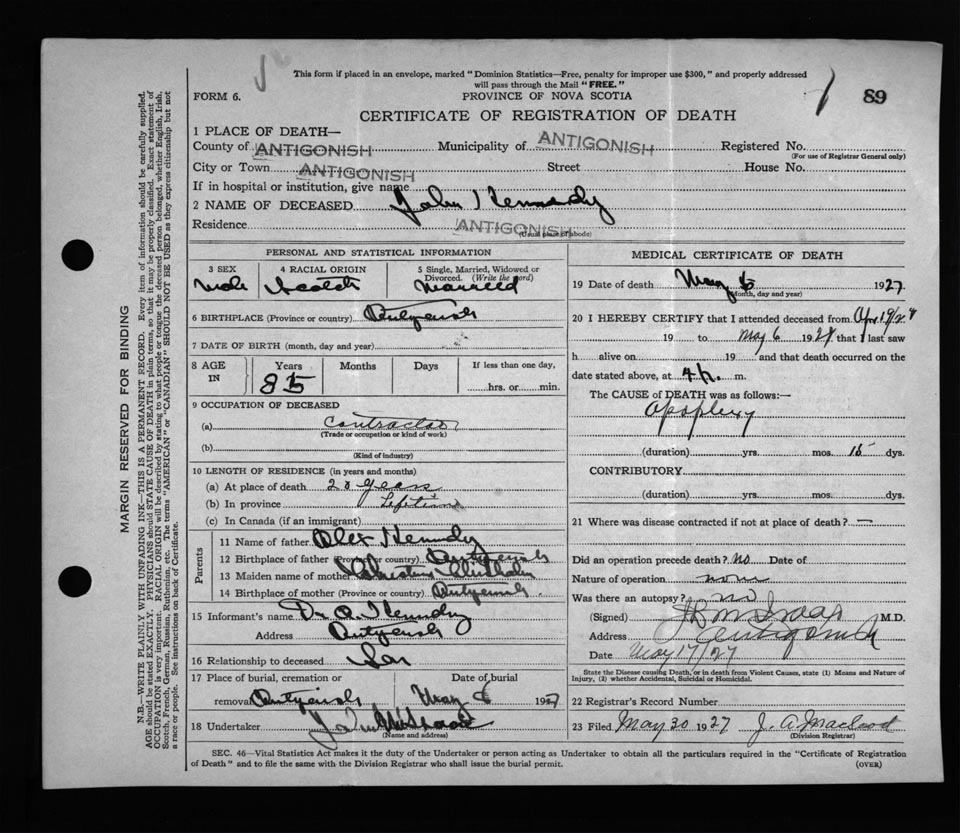 This form if placed in an envelope, marked "Dominion Statistics—Free, penalty for improper use $300," and properly addressed
will pass through the Mail "FREE."
89
FORM 6.
PROVINCE OF NOVA SCOTIA
CERTIFICATE OF REGISTRATION OF DEATH
1 PLACE OF DEATH—
County of ANTIGONISH Municipality of ANTIGONISH Registered No.
(For use of Registrar General only)
City or Town ANTIGONISH Street House No.
If in hospital or institution, give name
2 NAME OF DECEASED John Kennedy
Residence ANTIGONISH
(Usual place of abode)
PERSONAL AND STATISTICAL INFORMATION
3 SEX 4 RACIAL ORIGIN 5 Single, Married, Widowed or
Divorced. (Write the word)
male Scotch Married
6 BIRTHPLACE (Province or country) Antigonish
7 DATE OF BIRTH (month, day and year)
8 AGE IN Years Months Days If less than one day,
85 hrs. or min.
9 OCCUPATION OF DECEASED
(a) Contractor
(Trade or occupation or kind of work)
(b)
(Kind of industry)
10 LENGTH OF RESIDENCE (in years and months)
(a) At place of death 28 years
(b) In province Lifetime
(c) In Canada (if an immigrant)
Parents
11 Name of father Alex Kennedy
12 Birthplace of father (Province or country) Antigonish
13 Maiden name of mother Chisholm
14 Birthplace of mother (Province or country) Antigonish
15 Informant's name Dr. Kennedy
Address Antigonish
16 Relationship to deceased Son
17 Place of burial, cremation or Date of burial
removal Antigonish May 8 1927
18 Undertaker John
(Name and address)
MEDICAL CERTIFICATE OF DEATH
19 Date of death May 6 1927
(Month, day and year)
20 I HEREBY CERTIFY that I attended deceased from Apr 19/27
19 to May 6 1927 that I last saw
h alive on 19 and that death occurred on
date stated above, at 4 p. m.
The CAUSE of DEATH was as follows:—
Apoplexy
(duration) yrs. mos. 15 dys.
CONTRIBUTORY
(duration) yrs. mos. dys.
21 Where was disease contracted if not at place of death? —
Did an operation precede death? no Date of
Nature of operation none
Was there an autopsy? no
(Signed) M.D.
Address Antigonish
Date May 17/27
State the Disease causing Death, or in death from Violent Causes, state (1) Means and Nature of
Injury, (2) whether Accidental, Suicidal or Homicidal.
22 Registrar's Record Number
23 Filed May 30 1927 J. A. Macleod
(Division Registrar)
SEC. 46—Vital Statistics Act makes it the duty of the Undertaker or person acting as Undertaker to obtain all the particulars required in the "Certificate of Registration
of Death" and to file the same with the Division Registrar who shall issue the burial permit.
(OVER)
MARGIN RESERVED FOR BINDING
N.B.—WRITE PLAINLY WITH UNFADING INK—THIS IS A PERMANENT RECORD. Every item of information should be carefully supplied.
AGE should be stated EXACTLY. PHYSICIANS should STATE CAUSE OF DEATH in plain terms, so that it may be properly classified. Exact statement of
OCCUPATION is very important. RACIAL ORIGIN will be described by stating to what people or tongue the deceased person belonged, whether English, Irish,
Scotch, French, German, Russian, Ruthenian, etc. The terms "AMERICAN" or "CANADIAN" SHOULD NOT BE USED as they express citizenship but not
a race or people. See instructions on back of Certificate.